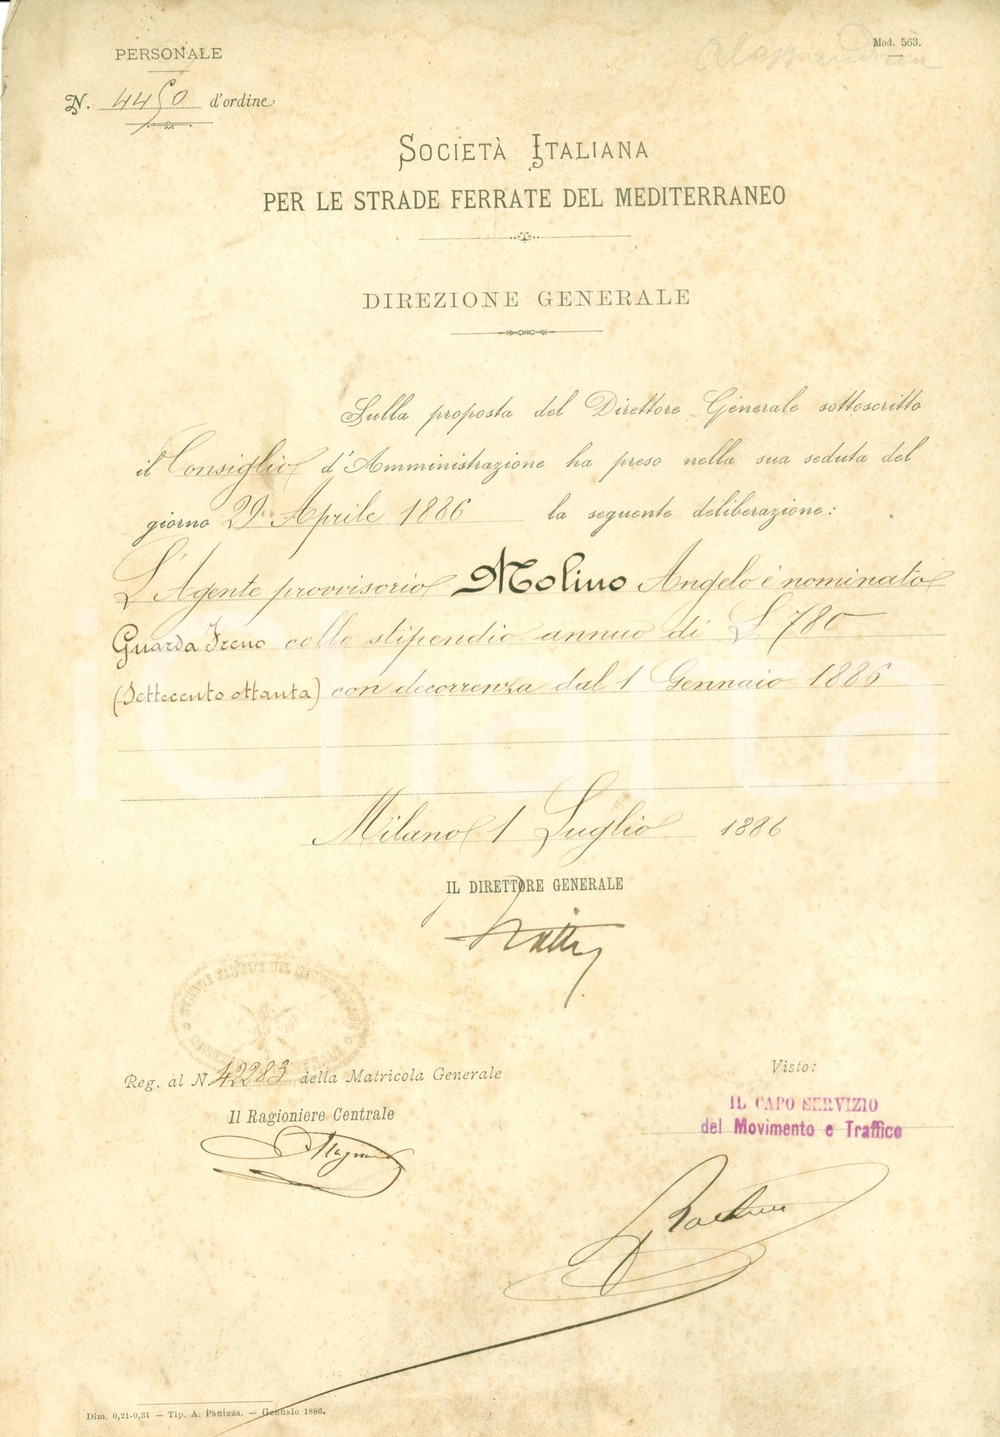 PERSONALE
Alessandria
Mod. 563.
N. 4450 d'ordine
SOCIETÀ ITALIANA
PER LE STRADE FERRATE DEL MEDITERRANEO
DIREZIONE GENERALE
Sulla proposta del Direttore Generale sottoscritto
il Consiglio d'Amministrazione ha preso nella sua seduta del
giorno 29 Aprile 1886 la seguente deliberazione:
L'Agente provvisorio Molino Angelo è nominato
Guarda Freno collo stipendio annuo di L 780
(Settecento ottanta) con decorrenza dal 1 Gennaio 1886
iCharta
Milano 1 Luglio 1886
IL DIRETTORE GENERALE
Reg. al N 42283 della Matricola Generale
Il Ragioniere Centrale
Visto:
IL CAPO SERVIZIO
del Movimento e Traffico
Dim. 0,21-0,31 — Tip. A. Panizza. — Gennaio 1886.